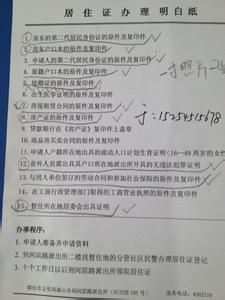 居住证办理明白纸
1、房东的第二代居民身份证的原件及复印件
2、房东户口本的原件及复印件
3、申请人的第二代居民身份证的原件及复印件
4、原籍户口本的原件及复印件
5、结婚证的原件及复印件
6、出生医学证明的原件及复印件
7、房屋租赁合同的原件及复印件
8、房产证的原件及复印件
9、贷款银行在《房产证》复印件上盖章
10、商品房买卖合同的原件及复印件
11、申请人户籍所在地出具的流动人口计划生育证明(16—49周岁的女性
12、省外人员需出具其户口所在地派出所开具的无违法犯罪证明
13、与用人单位签订的劳动合同和参加社会保险的原件及复印件
14、在工商行政管理部门取得的工商营业执照的原件及复印件
15、暂住所在地居委会出具证明
一寸照片
办事程序:
1、申请人准备齐申请资料
2、到河滨路派出所二楼找暂住地的分管社区民警办理居住证登记
3、十个工作日以后到河滨路派出所领取居住证
烟台市公安局福山分局河滨路派出所